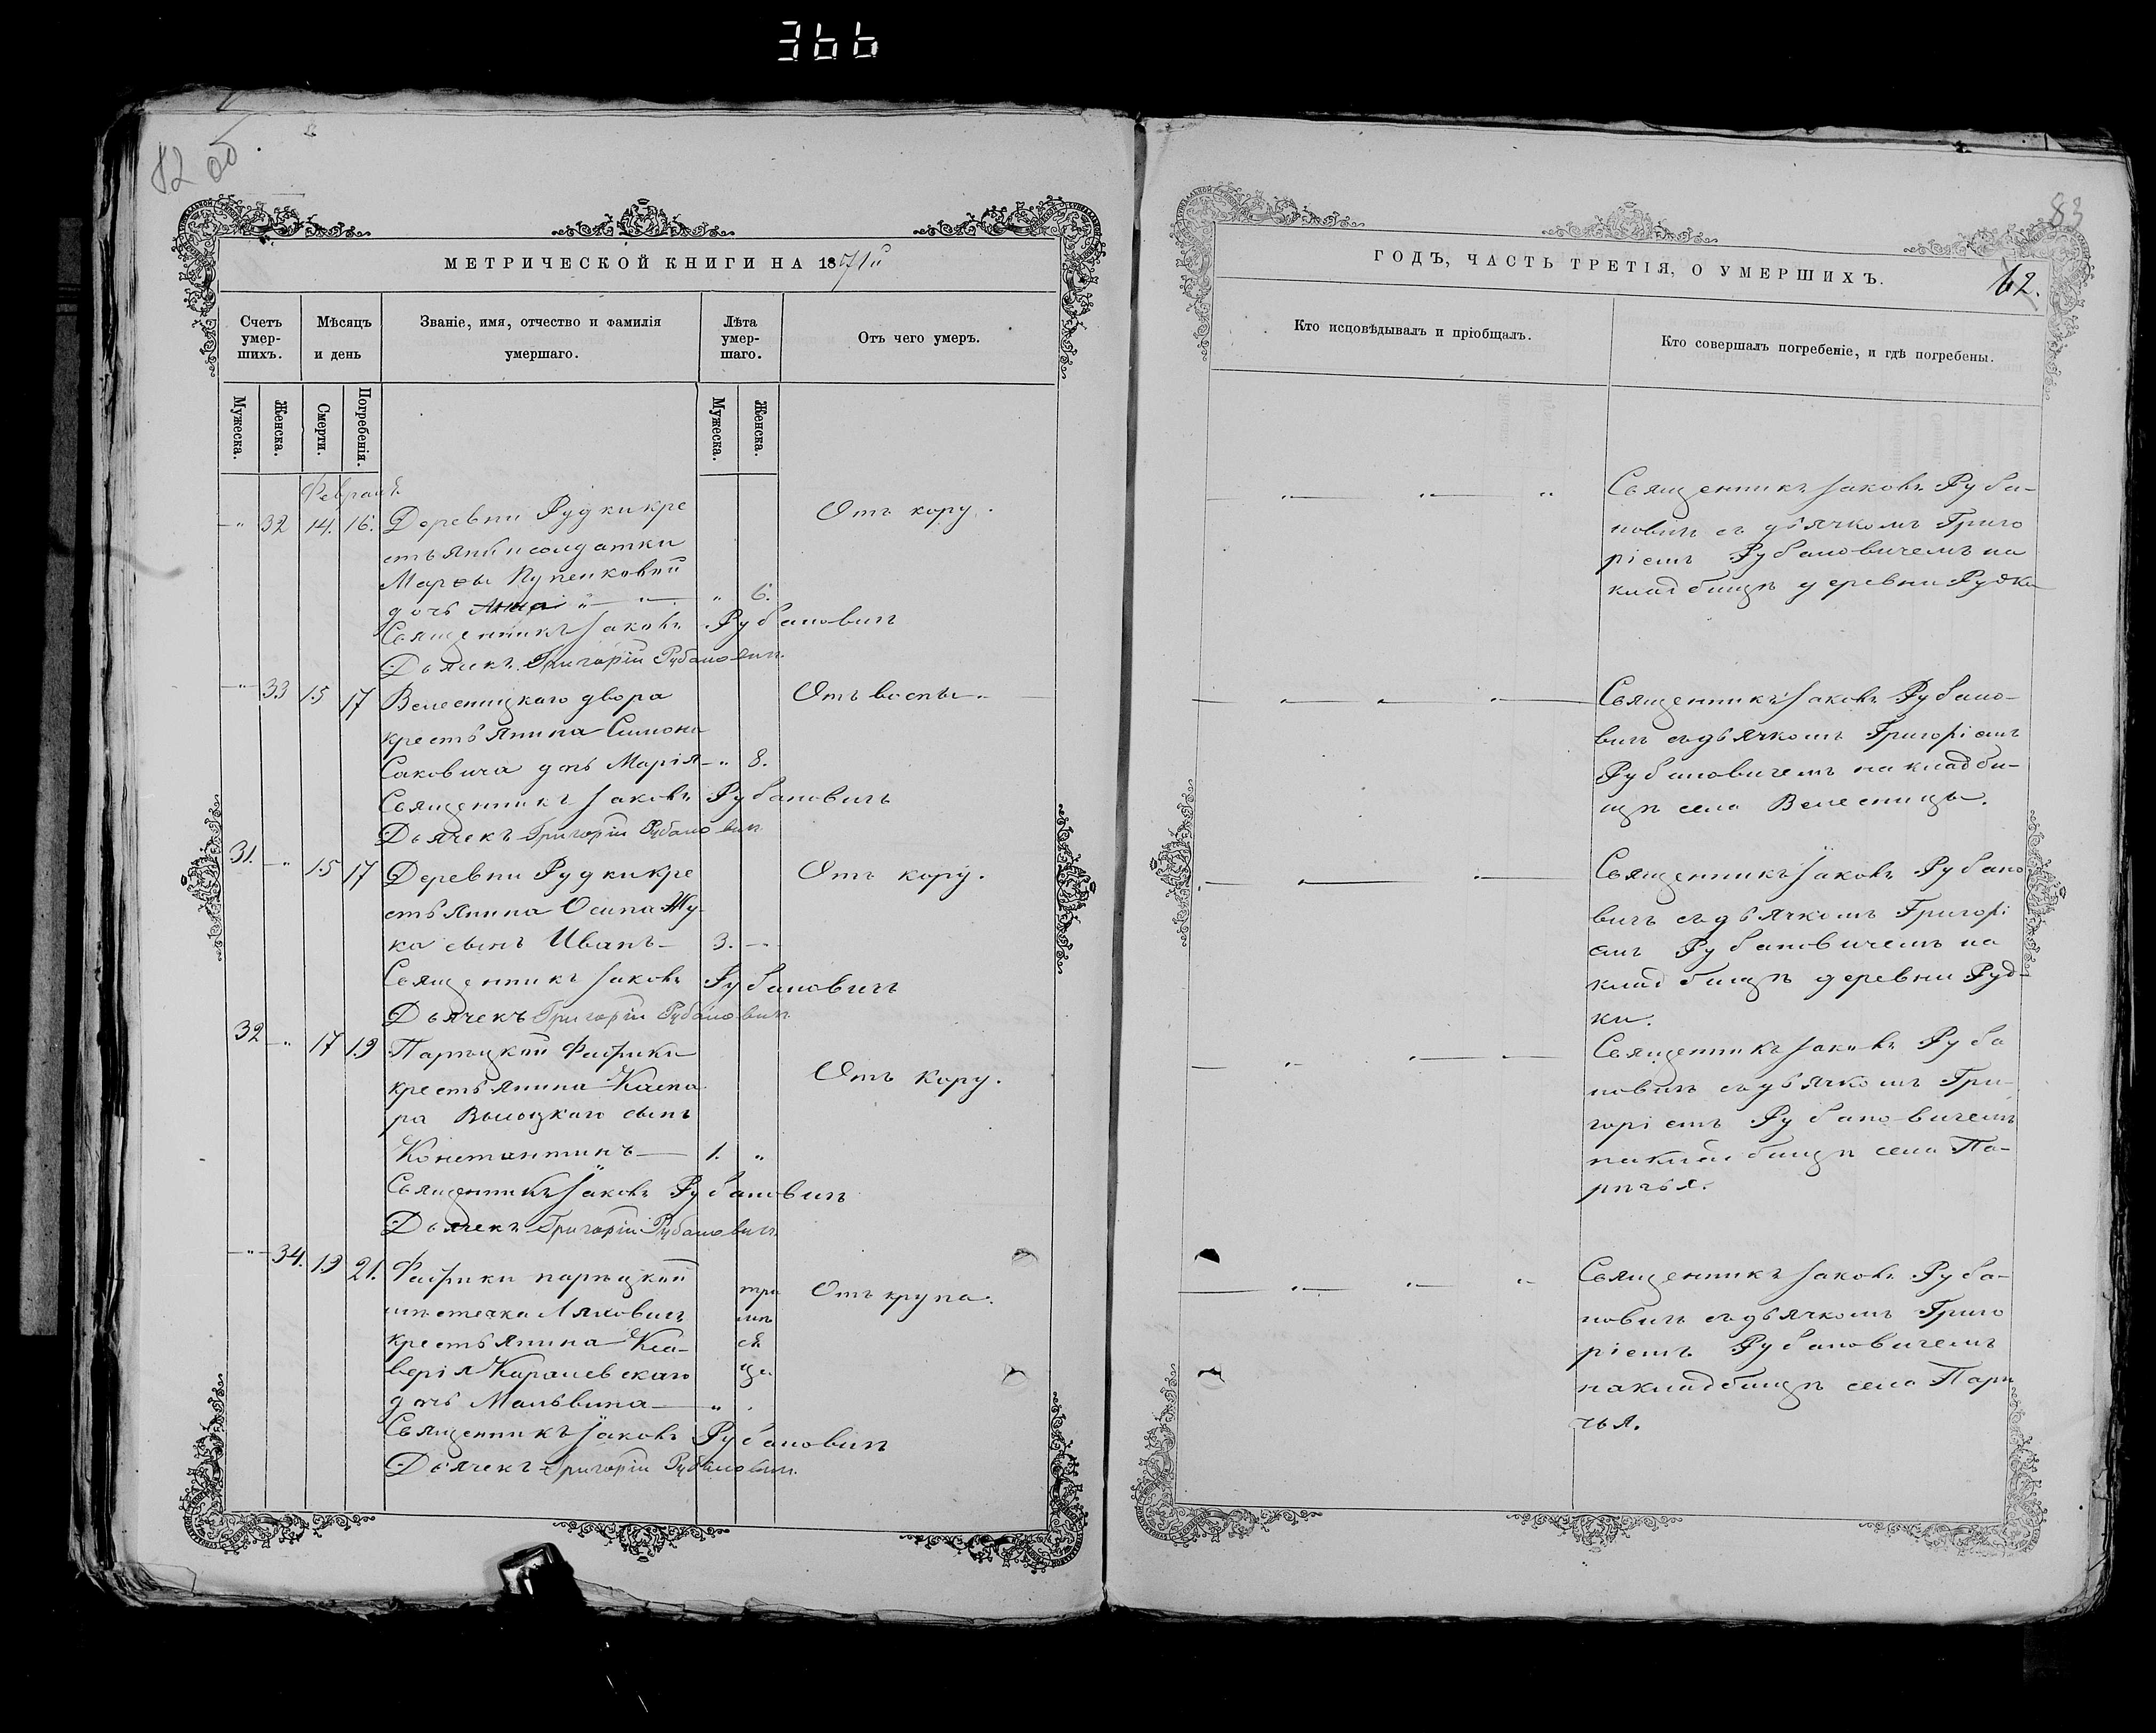 366
82 об.
МЕТРИЧЕСКОЙ КНИГИ НА 1871й
Счетъ умер-шихъ.
Мѣсяцъ и день
Званіе, имя, отчество и фамилія умершаго.
Лѣта умер-шаго.
Отъ чего умеръ.
Мужеска.
Женска.
Смерти.
Погребенія.
Мужеска.
Женска.
Февраль
" 32 14. 16. Деревни Рудки кре Отъ кору.
стьянки солдатки
Марѳы Пупенковой
дочь Анна " 6.
Священникъ Іаковъ Рубановичъ
Дьячекъ Григорій Рубановичъ.
" 33 15 17 Велесницкаго двора Отъ воспы.
крестьянина Симона
Саковича дочь Марія " 8.
Священникъ Іаковъ Рубановичъ
Дьячекъ Григорій Рубановичъ
31. " 15 17 Деревни Рудки кре Отъ кору.
стьянина Осипа Жу-
ка сынъ Иванъ 3.
Священникъ Іаковъ Рубановичъ
Дьячекъ Григорій Рубановичъ
32 " 17 19 Парѣцкой Фабрики
крестьянина Каспа Отъ кору.
ра Высоцкаго сынъ
Константинъ 1. "
Священникъ Іаковъ Рубановичъ
Дьячекъ Григорій Рубановичъ.
" 34. 19 21. Фабрики парѣцкой
мѣстечка Ляховичъ три мѣ Отъ крупа.
крестьянина Кса- ся
верія Каралевскаго ца
дочь Мальвина "
Священникъ Іаковъ Рубановичъ
Дьячекъ Григорій Рубановичъ.
83
62.
ГОДЪ, ЧАСТЬ ТРЕТІЯ, О УМЕРШИХЪ.
Кто исповѣдывалъ и пріобщалъ.
Кто совершалъ погребеніе, и гдѣ погребены.
Священникъ Іаковъ Руба-
новичъ съ дьячкомъ Григо
ріемъ Рубановичемъ на
кладбищѣ деревни Рудки
Священникъ Іаковъ Рубано-
вичъ съ дьячкомъ Григоріемъ
Рубановичемъ на кладби-
щѣ села Велесницы.
Священникъ Іаковъ Рубано
вичъ съ дьячкомъ Григорі
емъ Рубановичемъ на
кладбищѣ деревни Руд-
ки.
Священникъ Іаковъ Руба
новичъ съ дьячкомъ Гри-
горіемъ Рубановичемъ
на кладбищѣ села По-
рѣчья.
Священникъ Іаковъ Руба-
новичъ съ дьячкомъ Григо
ріемъ Рубановичемъ
на кладбищѣ села Парѣ
чья.